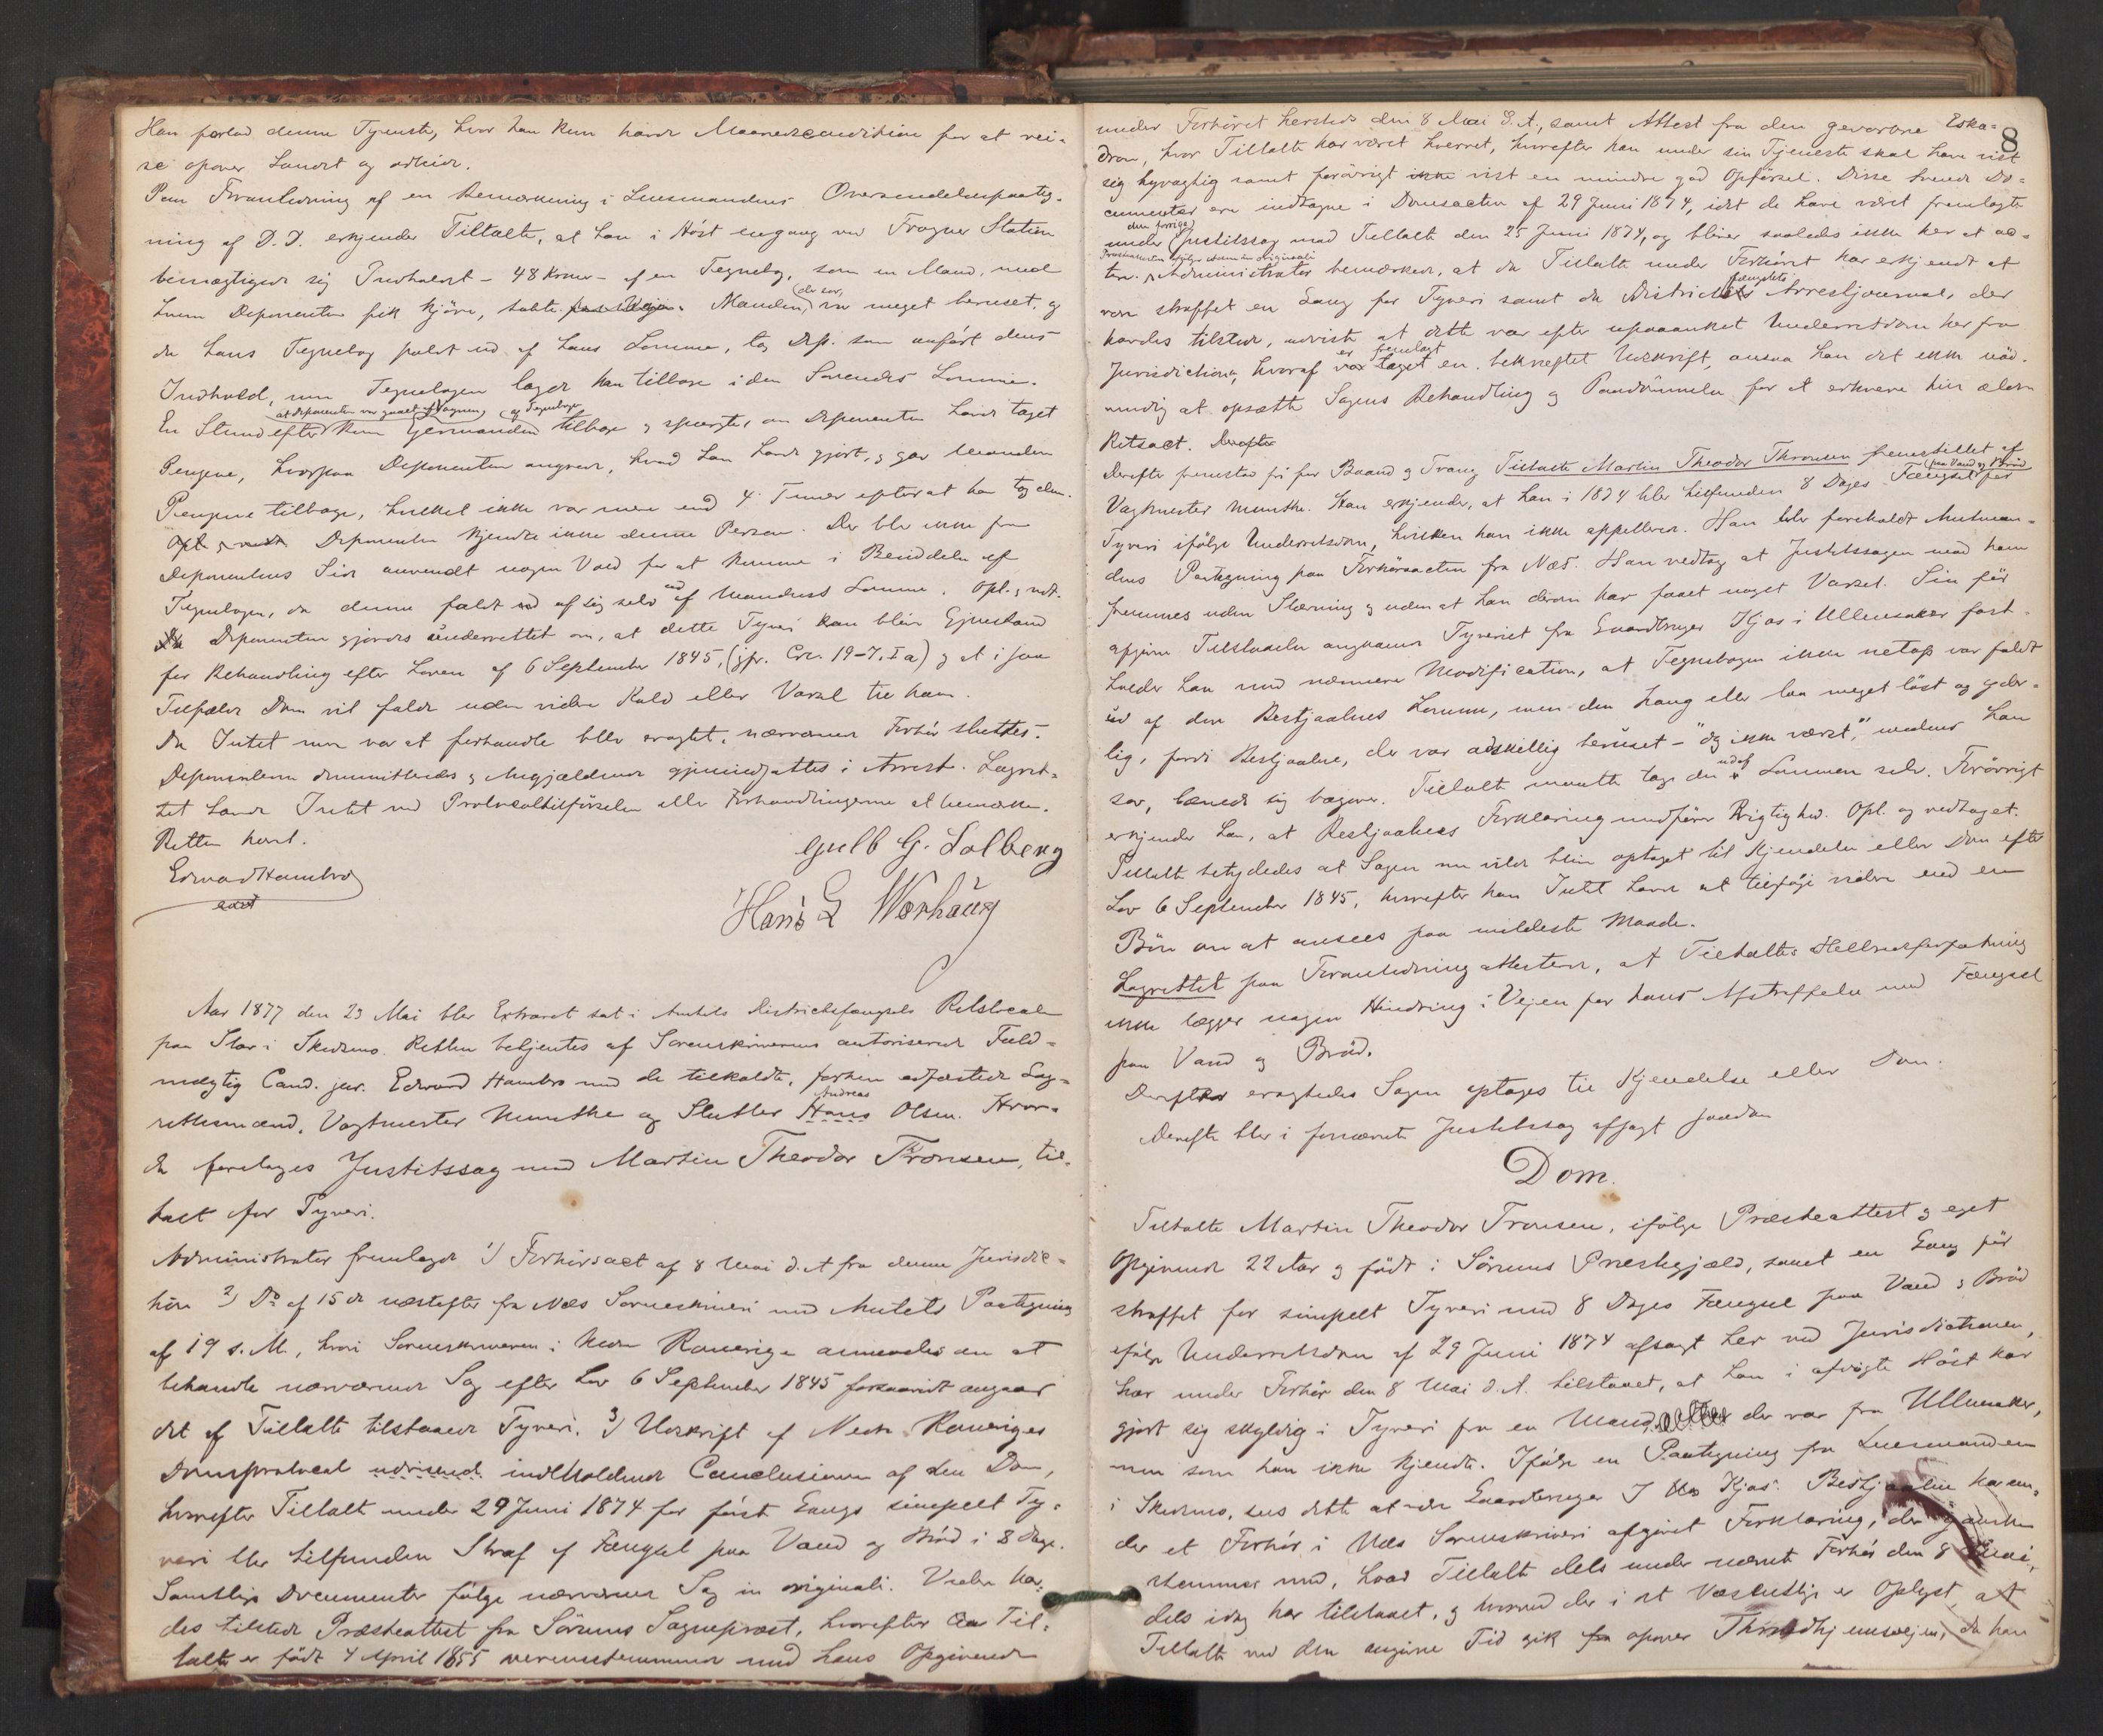 Han forlod denne Tjeneste, hvor han kun havde Maanedscondition for at rei-
se opover Landet og arbeide.
Paa Foranledning af en Bemærkning i Lensmandens Oversendelsespaateg-
ning af D. D. erkjender Tiltalte, at han i Høst engang ved Frogner Station
bemægtigede sig Indholdet - 48 Kroner - af en Tegnebog, som en Mand, med
hvem Deponenten fik kjøre, tabte. Manden, (der sov,) var meget beruset, og
da hans Tegnebog faldt ud af hans Lomme, tog Dep. som anført dens
Indhold, men Tegnebogen lagde han tilbage i den Sovendes Lomme.
at Deponenten var gaaet af Vognen og Tegnebogen
En Stund efter kom Gjermanden tilbage og spurgte, om Deponenten havde taget
Pengene, hvorpaa Deponenten angrede, hvad han havde gjort, og gav Manden
Pengene tilbage, hvilket ikke var mere end 4 Timer efterat han tog dem.
Opl. og vedt. Deponenten kjendte ikke denne Person. Der blev ikke fra
Deponentens Side anvendt nogen Vold for at komme i Besiddelse af
Tegnebogen, da denne faldt ud af sig selv ud af Mandens Lomme. Opl. og vedt.
Deponenten gjordes underrettet om, at dette Tyveri kan blive Gjenstand
for Behandling efter Loven af 6 September 1845, (jfr. Crl. 19-7, I a) og at i saa
Tilfælde Dom vil falde uden videre Kald eller Varsel til ham.
Da Intet mere var at forhandle blev eragtet, nærværende Forhør sluttes.
Deponenterne demitteredes og Angjældende gjenindsattes i Arrest. Lagret-
tet havde Intet ved Protocoltilførselen eller Forhandlingerne at bemærke.
Retten hævet.
Edward Hambro
edet
Gulb G. Solberg
Hans L Wørhaug
Aar 1877 den 23 Mai blev Extraret sat i Amtets Districtsfængsels Retslocale
paa Slar i Skedsmo. Retten betjentes af Sorenskriverens autoriserede Fuld-
mægtig Cand. jur. Edward Hambro med de tilkaldte, forhen edfæstede Lag-
Andreas
rettesmænd, Vagtmester Munthe og Slutter Hans Olsen. Hvor-
da foretages Justitssag mod Martin Theodor Tronsen, til-
talt for Tyveri.
Administrator fremlagde 1) Forhørsact af 8 Mai d. A. fra denne Jurisdic-
tion 2) Do af 15de næstefter fra Næs Sorenskriveri med Amtets Paategning
af 19 s. M., hvori Sorenskriveren i Nedre Romerige anmodes om at
behandle nærværende Sag efter Lov 6 September 1845 forsaavidt angaar
det af Tiltalte tilstaaede Tyveri. 3) Udskrift af Nedre Romeriges
Domsprotocol udvisende indeholdende Conclusionen af den Dom,
hvorefter Tiltalte under 29 Juni 1874 for første Gangs simpelt Ty-
veri blev tilfunden Straf af Fængsel paa Vand og Brød i 8 Dage.
Samtlige Documenter følge nærværende Sag in originali. Videre hav-
des tilstede Præsteattest fra Sørums Sogneprest, hvorefter Til-
talte er født 4 April 1855 overensstemmende med hans Opgivende
8
under Forhøret hersteds den 8 Mai d. A., samt Attest fra den gevorbne Eska-
dron, hvor Tiltalte har været hvervet, hvorefter han under sin Tjeneste skal have vist
sig hyragtig samt forøvrigt vist en mindre god Opførsel. Disse tvende Do-
cumenter ere indtagne i Domsacten af 29 Juni 1874, idet de have været fremlagte
den forrige
under Justitssag mod Tiltalte den 25 Juni 1874, og bliver saaledes ikke her at ac-
Præsteattesten følger Acten in originali
tere. Administrator bemærkede, at da Tiltalte under Forhøret har erkjendt at
være straffet en Gang for Tyveri samt da Districtsfængslets Arrestjournal, der
havdes tilstede, udviste at dette var efter upaaanket Underretsdom her fra
er fremlagt
Jurisdictionen, hvoraf var taget en bekræftet Udskrift, ansaa han det ikke nød-
vendig at opsætte Sagens Behandling og Paadømmelse for at erhverve hin ældre
Retsact. Derefter
Derefter fremstod fri for Baand og Tvang Tiltalte Martin Theodor Thronsen fremstillet af
(paa Vand og Brød
Vagtmester Munthe. Han erkjender, at han i 1874 blev tilfunden 8 Dages Fængsel for
Tyveri ifølge Underretsdom, hvilken han ikke appellerede. Han blev foreholdt Amtman-
dens Paategning paa Forhørsacten fra Næs. Han vedtog at Justitssagen mod ham
fremmes uden Stævning og uden at han derom har faaet noget Varsel. Sin før
afgivne Tilstaaelse angaaende Tyveriet fra Gaardbruger Kjos i Ullensaker fast-
holder han med nærmere Modification, at Tegnebogen ikke netop var faldt
ud af den Bestjaalnes Lomme, men den hang eller laa meget løst og yder-
lig, fordi Bestjaalne, der var adskillig beruset - "dog ikke værst", medens han
sov, lænede sig bagover. Tiltalte maatte tage den ud af Lommen selv. Forøvrigt
erkjender han, at Bestjaalnes Forklaring medfører Rigtighed. Opl. og vedtaget.
Tiltalte betydedes at Sagen nu vilde blive optaget til Kjendelse eller Dom efter
Lov 6 September 1845, hvorefter han Intet havde at tilføie videre end en
Bøn om at ansees paa mildeste Maade.
Lagrettet paa Foranledning attesterede, at Tiltaltes Helbredsforfatning
ikke lægger nogen Hindring i Vejen for hans Afstraffelse med Fængsel
paa Vand og Brød.
Derefter eragtedes Sagen optages til Kjendelse eller Dom.
Derefter blev i fornævnte Justitssag afsagt saadan
Dom.
Tiltalte Martin Theodor Tronsen, ifølge Præsteattest og eget
Opgivende 22 Aar og født i Sørums Prestegjæld, samt en Gang før
straffet for simpelt Tyveri med 8 Dages Fængsel paa Vand og Brød
ifølge Underretsdom af 29 Juni 1874 afsagt her ved Jurisdictionen,
har under Forhør den 8 Mai d. A. tilstaaet, at han i afvigte Høst har
gjort sig skyldig i Tyveri fra en Mand, der var fra Ullensaker,
men som han ikke kjendte. Ifølge en Paategning fra Lensmanden
i Skedsmo, sees dette at være Gaardbruger J Kjos. Bestjaalne har un-
der et Forhør i Næs Sorenskriveri afgivet Forklaring, der ganske
stemmer med, hvad Tiltalte dels under nævnte Forhør den 8 Mai,
dels idag har tilstaaet, og hvorved der i det Væsentlige er Oplyst, at
Tiltalte ved den angivne Tid gik opover Throndhjemsvejen, da han